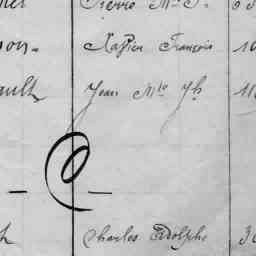 Pierre M. J.
son. Xavier François 10
ault Jean Mte Jh. 11
— C —
h Charles Adolphe 30